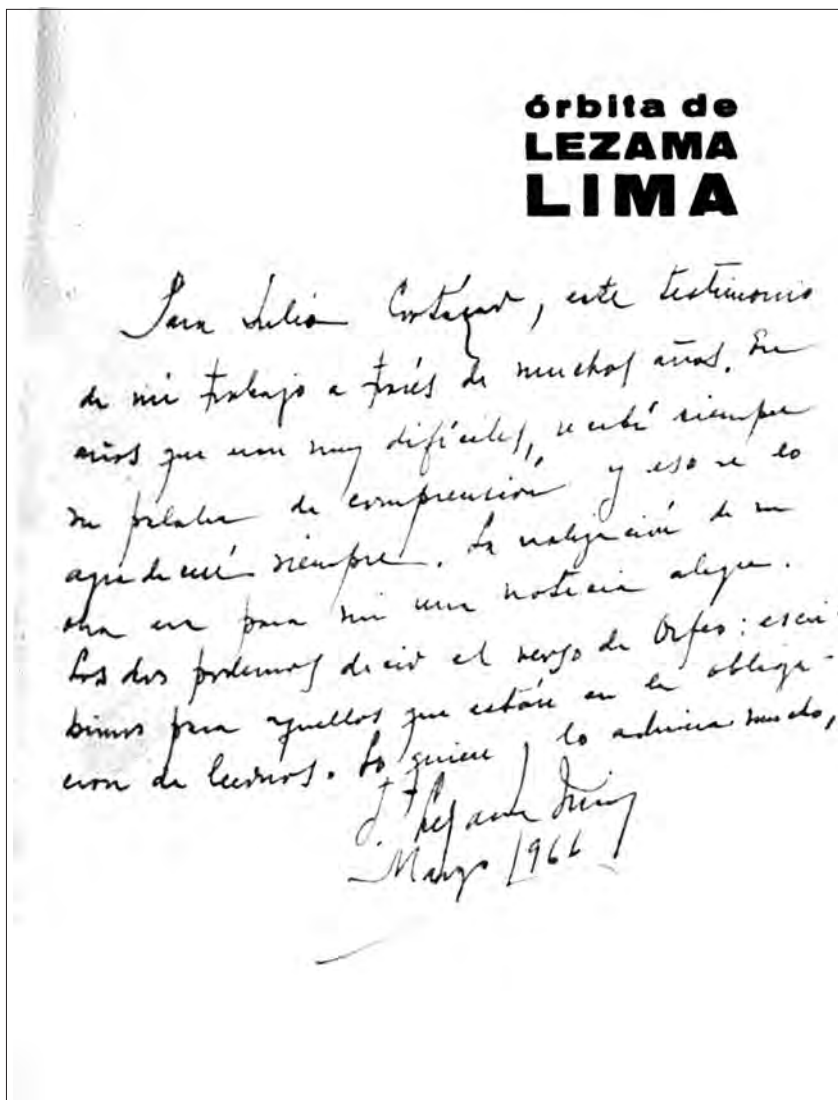 órbita de
LEZAMA
LIMA
Para Julio Cortázar, este testimonio
de mi trabajo a través de muchos años. En
años que eran muy difíciles, recibí siempre
su palabra de comprensión y eso se lo
agradeceré siempre. La realización de su
obra era para mí una noticia alegre.
Los dos podemos decir el verso de Orfeo: escri-
bimos para aquellos que están en la obliga-
ción de leernos. Lo quiere y lo admira mucho,
J. Lezama Lima
Marzo 1966